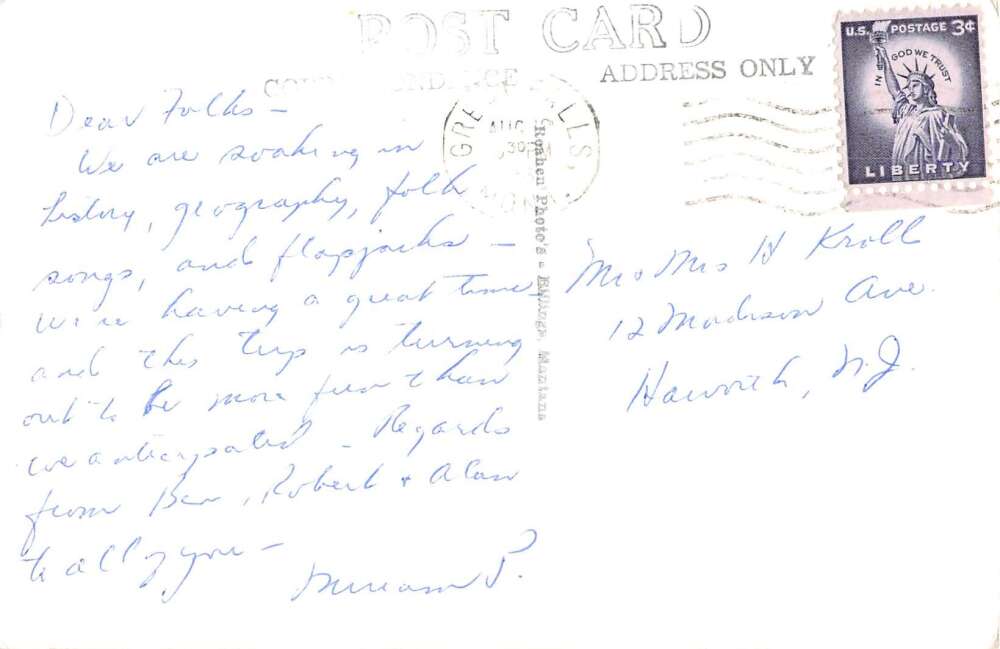 POST CARD
ADDRESS ONLY
U.S. POSTAGE 3¢
IN GOD WE TRUST
LIBERTY
AUG
30
Dear Folks –
We are soaking in
history, geography, folk
songs, and flapjacks –
We're having a great time
and this trip is turning
out to be more fun than
we anticipated – Regards
from Ben, Robert + Alan
to all of you –
Miriam P.
"Roahen Photo's - Billings, Montana
Mr Mrs H Kroll
12 Madison Ave.
Haworth, N.J.